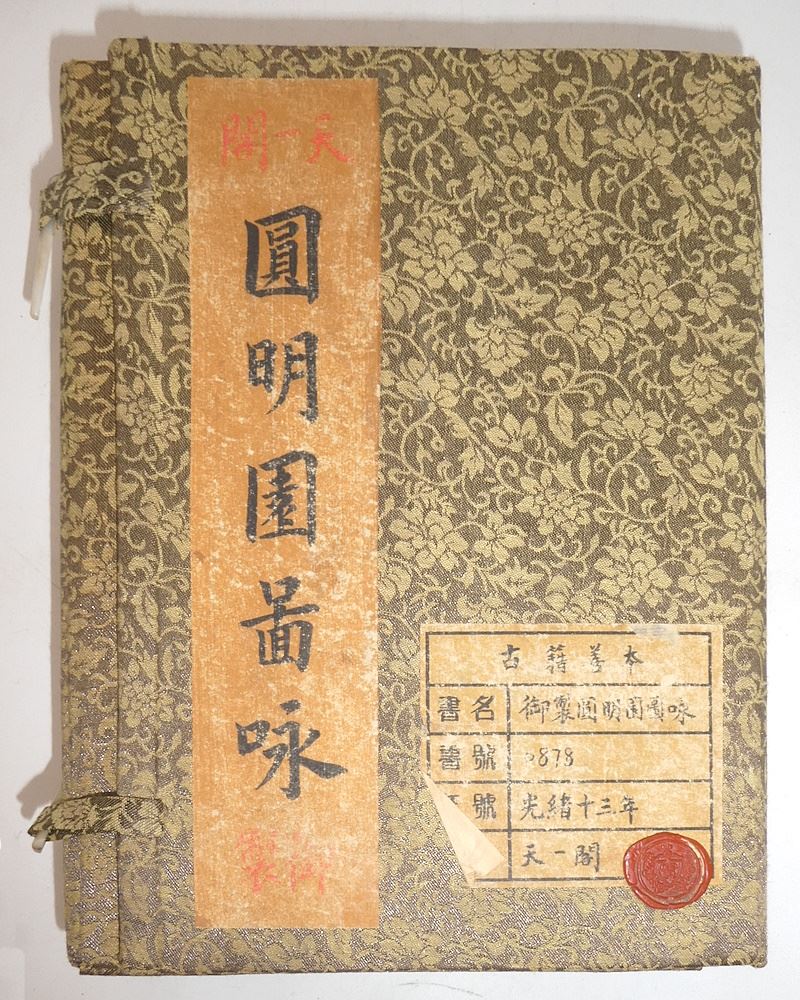 天一閣
圓明園啚咏
御製
古籍善本
書名 御製圓明園啚咏
書號 0878
號 光緒十三年
天一閣